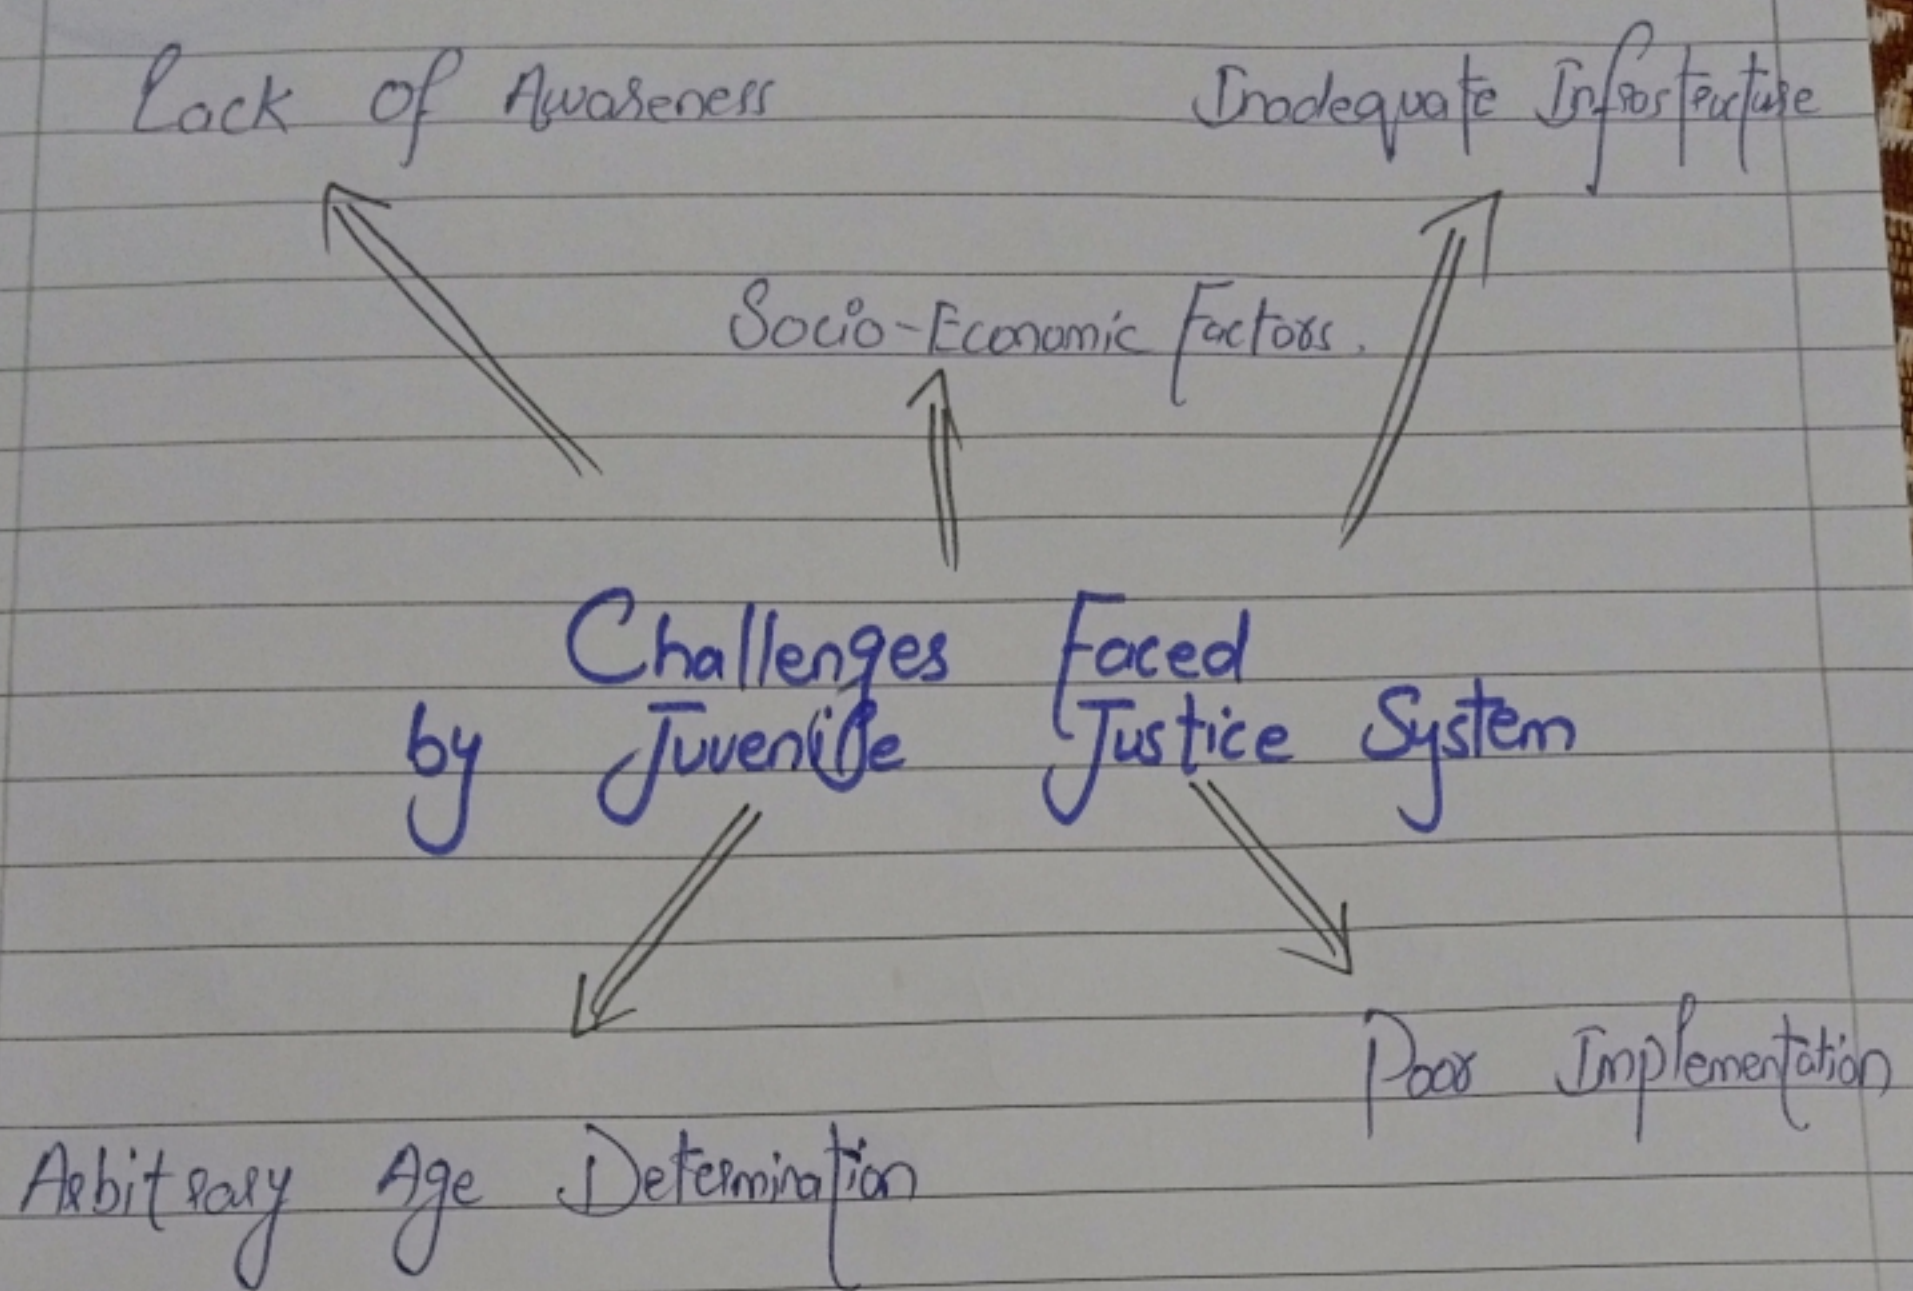 Lack of Awareness
Inadequate Infrastructure
Socio-Economic Factors.
Challenges Faced
by Juvenile Justice System
Poor Implementation
Arbitrary Age Determination